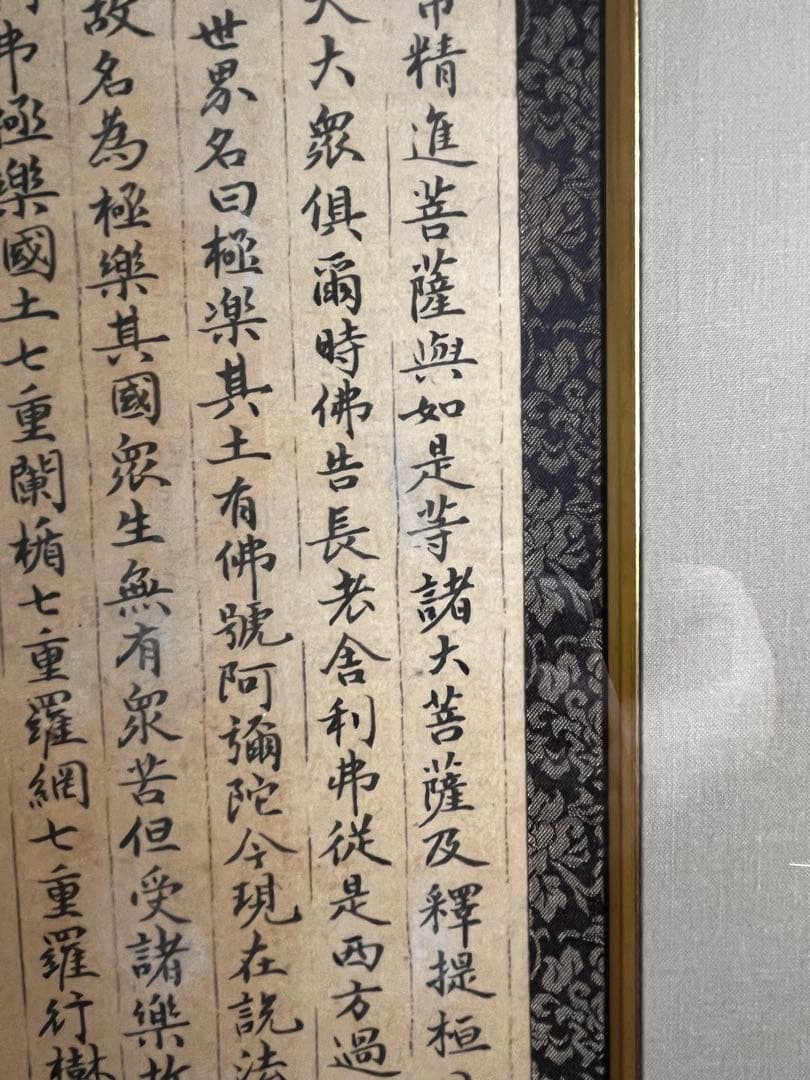 常精進菩薩與如是等諸大菩薩及釋提桓
大大衆俱爾時佛告長老舍利弗從是西方過
世界名曰極樂其土有佛號阿彌陀今現在説法
故名為極樂其國衆生無有衆苦但受諸樂故
弗極樂國土七重闌楯七重羅網七重羅行樹